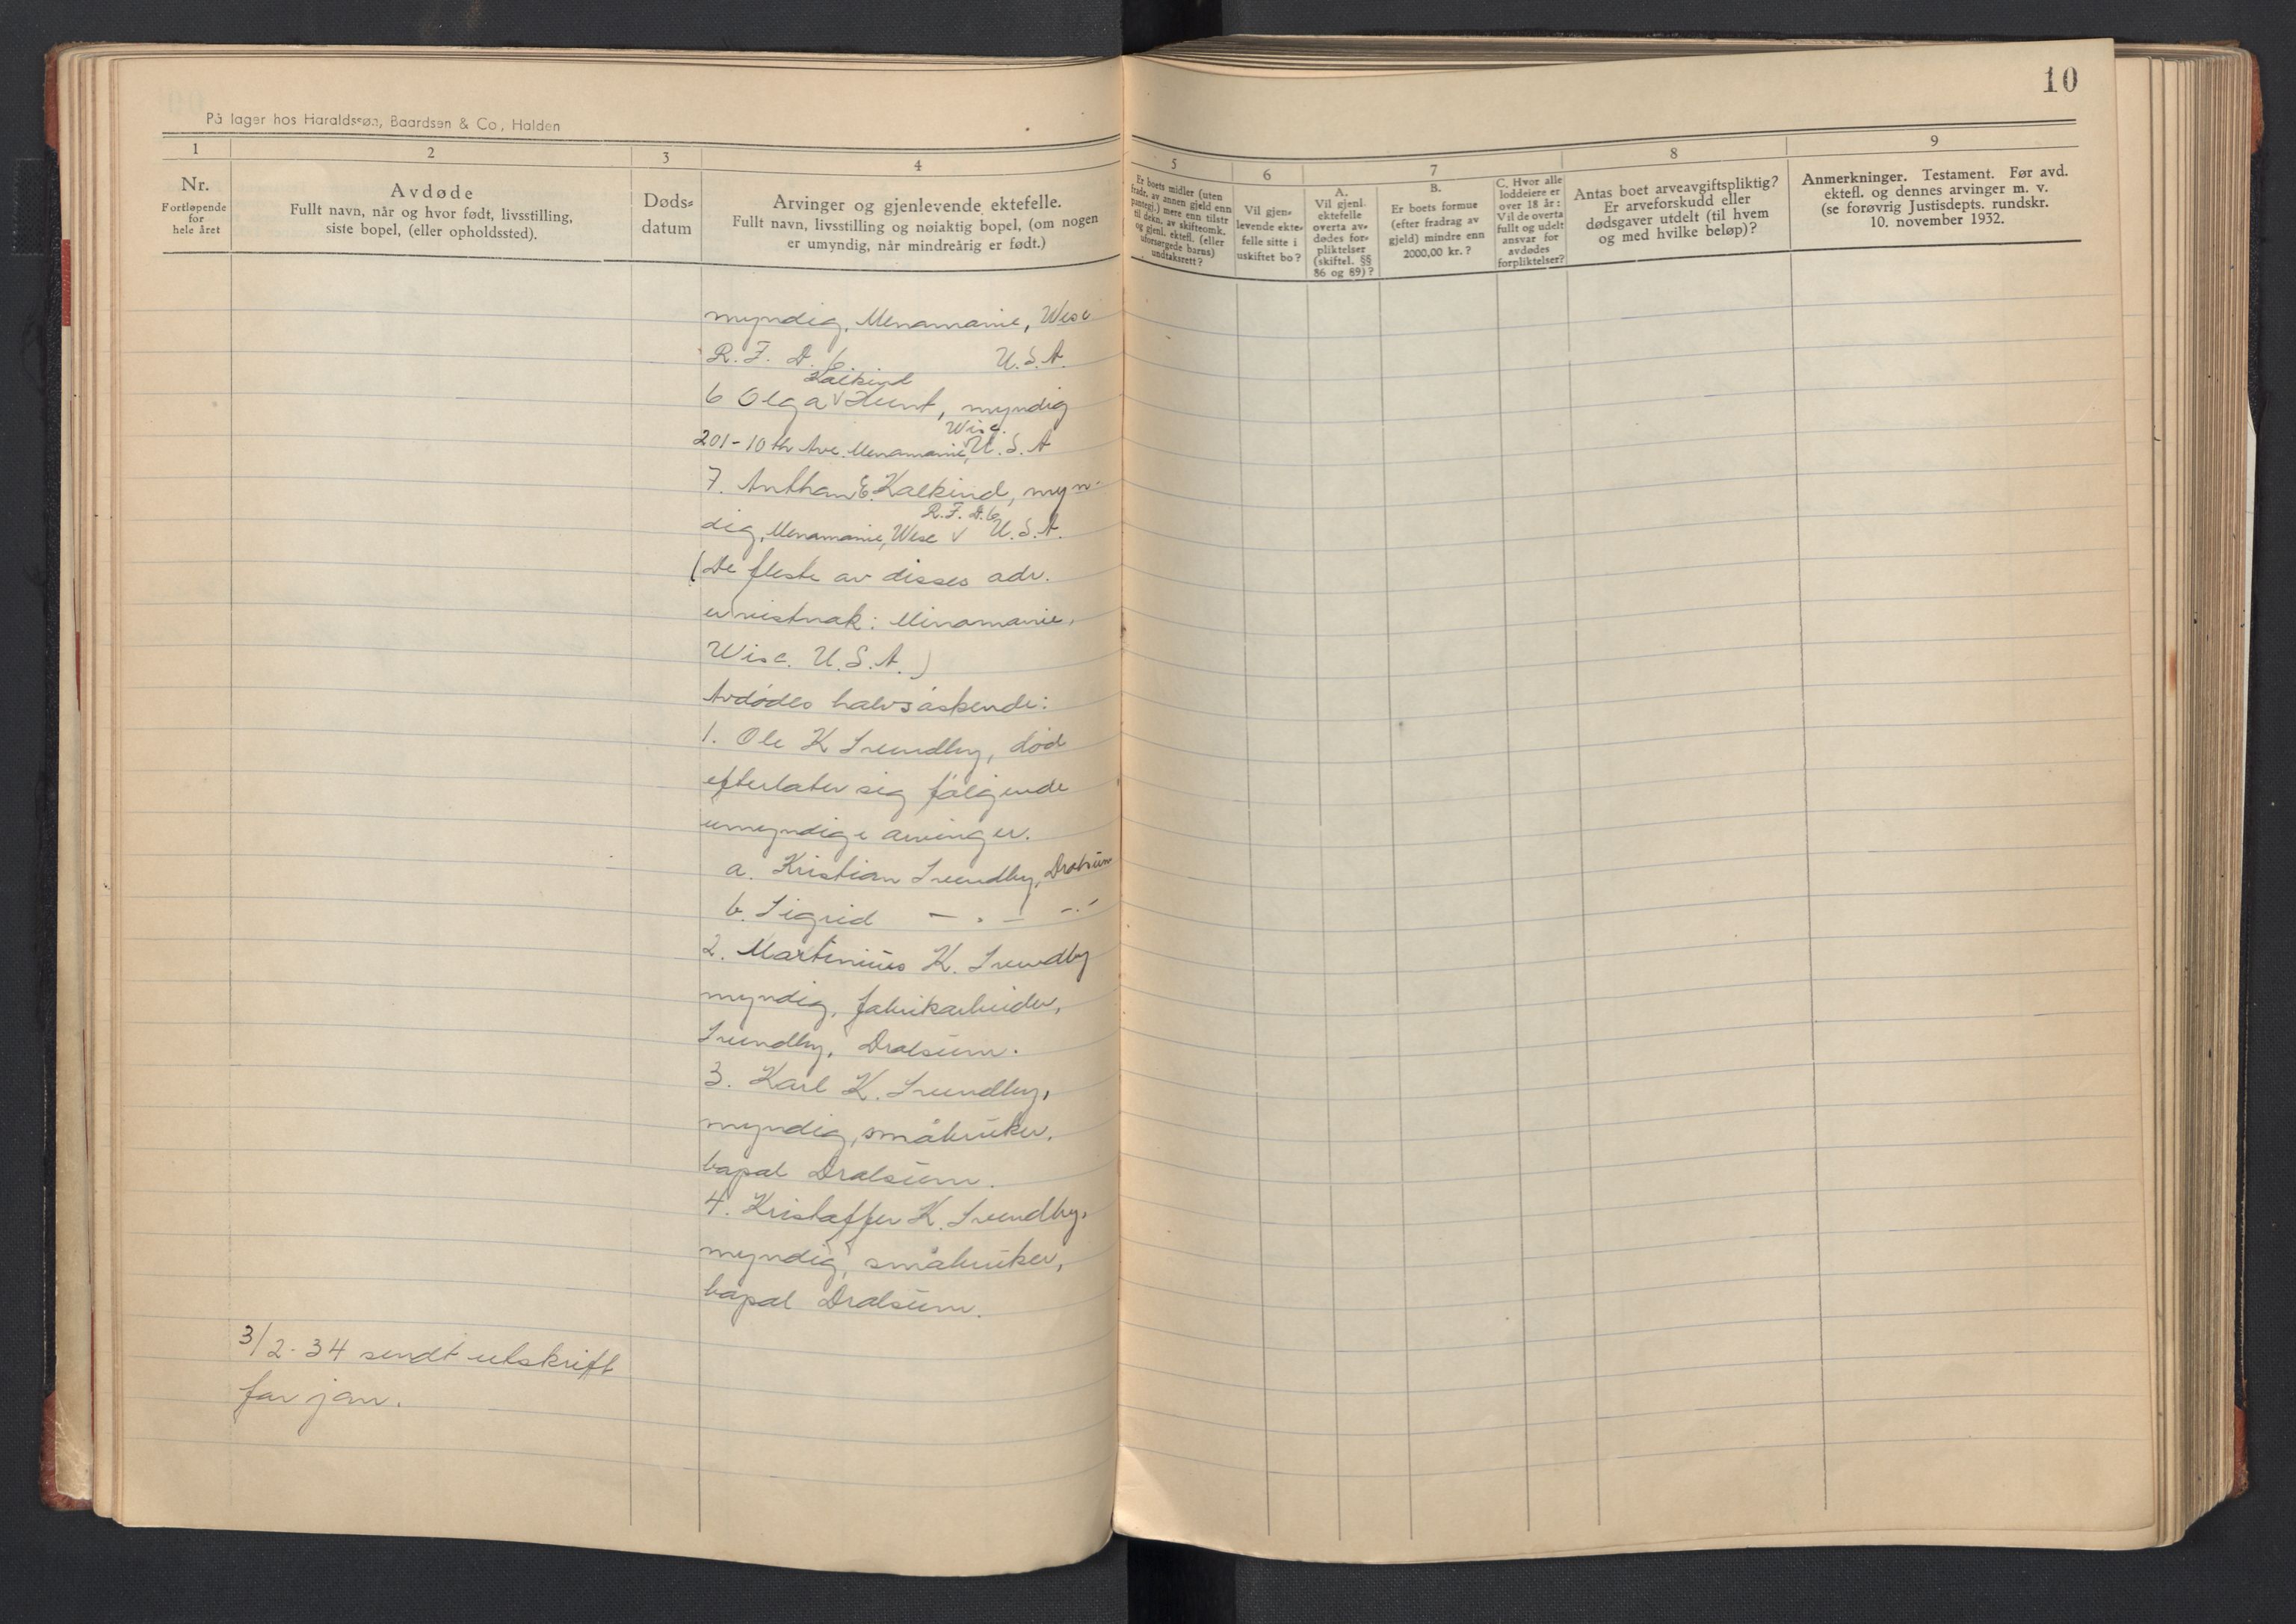 10
På lager hos Haraldssøn, Baardsen & Co., Halden
1
2
3
4
5
6
7
8
9
Nr.
Fortløpende
for
hele året
Avdøde
Fullt navn, når og hvor født, livsstilling,
siste bopel, (eller opholdssted).
Døds-
datum
Arvinger og gjenlevende ektefelle.
Fullt navn, livsstilling og nøiaktig bopel, (om nogen
er umyndig, når mindreårig er født.)
Er boets midler (uten
fradr. av annen gjeld enn
pantegj.) mere enn tilstr.
til dekn. av skifteomk.
og gjenl. ektef. (eller
uforsørgede barns)
undtaksrett?
Vil gjen-
levende ekte-
felle sitte i
uskiftet bo?
A.
Vil gjenl.
ektefelle
overta av-
dødes for-
pliktelser
(skiftel. §§
86 og 89)?
B.
Er boets formue
(efter fradrag av
gjeld) mindre enn
2000,00 kr.?
C. Hvor alle
loddeiere er
over 18 år:
Vil de overta
fullt og udelt
ansvar for
avdødes
forpliktelser?
Antas boet arveavgiftspliktig?
Er arveforskudd eller
dødsgaver utdelt (til hvem
og med hvilke beløp)?
Anmerkninger. Testament. Før avd.
ektefl. og dennes arvinger m. v.
(se forøvrig Justisdepts. rundskr.
10. november 1932.
myndig, Menomonie, Wisc
R.F.D. 6. U.S.A.
Kalkind
6 Olga v Hunt, myndig
Wisc.
201-10th Ave. Menomonie, v U.S.A
7. Anthon E. Kalkind, myn-
R.F.D.6
dig, Menomonie, Wisc v U.S.A.
(De fleste av disses adr.
er nistnok: Minomonie,
Wisc. U.S.A.)
Avdødes halvsøskende:
1. Ole K Svendby, død
efterlater sig følgende
umyndige arvinger.
a. Kristian Svendby, Drolsum
b. Sigrid — . — -.-
2. Martinius K. Svendby
myndig, fabrikarbeider,
Svendby, Drolsum.
3. Karl K. Svendby,
myndig, småbruker,
bopal Drolsum.
4. Kristoffer K. Svendby,
myndig, småbruker,
bopal Drolsum.
3/2-34 sendt utskrift
for jan.